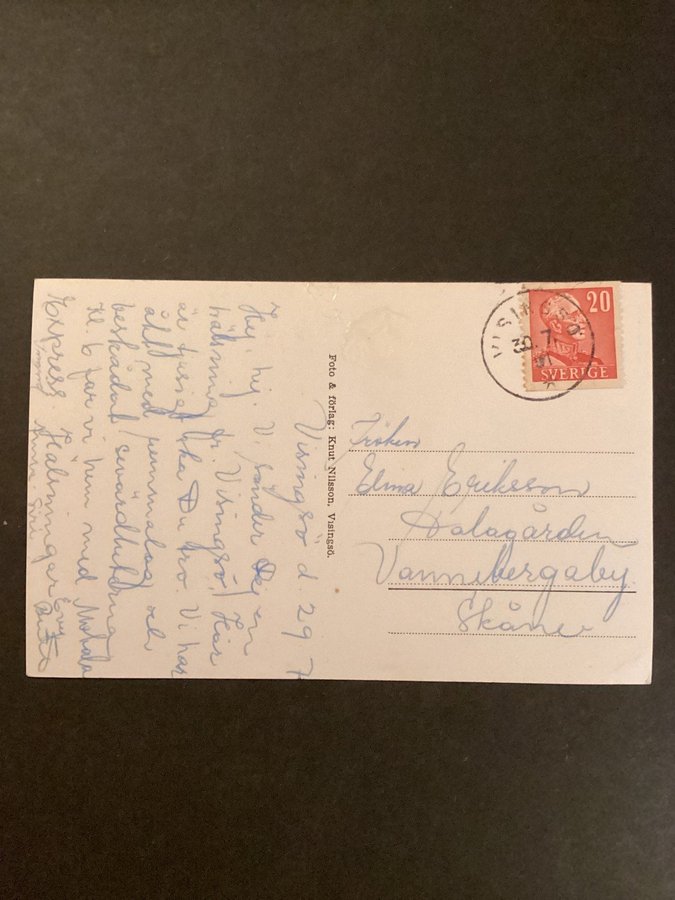 Visingsö d. 29 7
Hej, hej. Vi sänder Dej en
hälsning fr. Visingsö! Här
är tjusigt ska Du tro. Vi har
åkt med remmalag och
beskådat sevärdheterna
Kl. 6 far vi hem med Motala
Express Hälsningar
Anna Siri
Foto & förlag: Knut Nilsson, Visingsö.
VISINGSÖ
30.7.
20
SVERIGE
Fröken
Elma Eriksson
Dalagården
Vannebergaby
Skåne